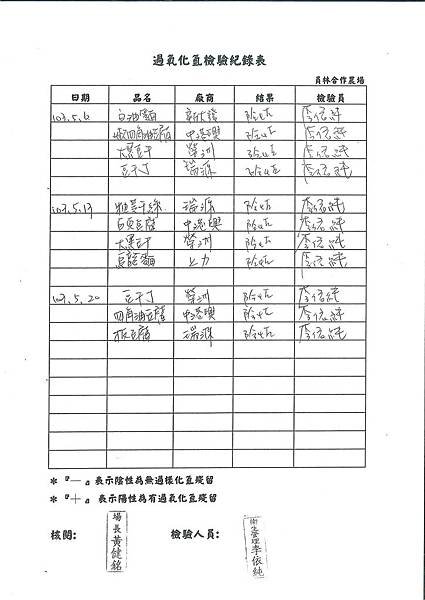 過氧化氫檢驗紀錄表
員林合作農場
日期 品名 廠商 結果 檢驗員
103.5.6 白油麵 新大發 陰性 李依純
四角油豆腐 中港興 陰性 李依純
大黑豆干 榮洲 陰性 李依純
豆干丁 瑞源 陰性 李依純
103.5.13 干絲 瑞源 陰性 李依純
百頁豆腐 中港興 陰性 李依純
大黑豆干 榮洲 陰性 李依純
烏龍麵 上力 陰性 李依純
103.5.20 豆干丁 榮洲 陰性 李依純
四角油豆腐 中港興 陰性 李依純
板豆腐 瑞源 陰性 李依純
* 『一』表示陰性為無過樣化氫殘留
* 『十』表示陽性為有過氧化氫殘留
核閱: 場長黃健銘 檢驗人員: 衛生管理李依純